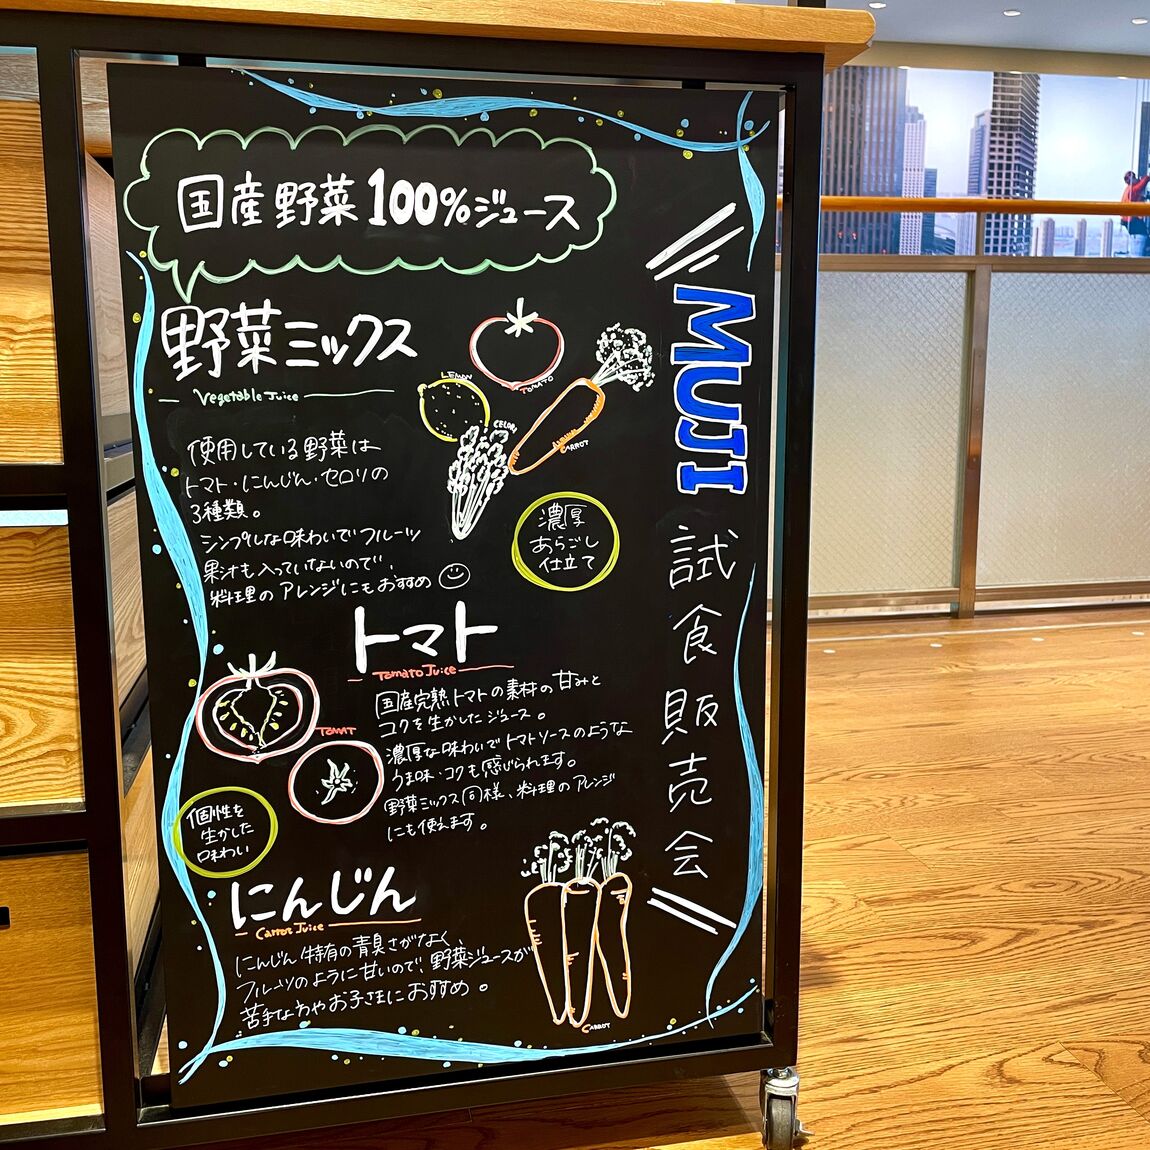 国産野菜100%ジュース
野菜ミックス
Vegetable Juice
LEMON
TOMATO
CELORI
CARROT
使用している野菜は
トマト・にんじん・セロリの
3種類。
シンプルな味わいでフルーツ
果汁も入っていないので、
料理のアレンジにもおすすめ
濃厚
あらごし
仕立て
トマト
Tomato Juice
国産完熟トマトの素材の甘みと
コクを生かしたジュース。
濃厚な味わいでトマトソースのような
うま味・コクも感じられます。
野菜ミックス同様、料理のアレンジ
にも使えます。
TOMAT
個性を
生かした
味わい
にんじん
Carrot Juice
にんじん特有の青臭さがなく、
フルーツのように甘いので、野菜ジュースが
苦手な方やお子さまにおすすめ。
CARROT
MUJI
試食販売会